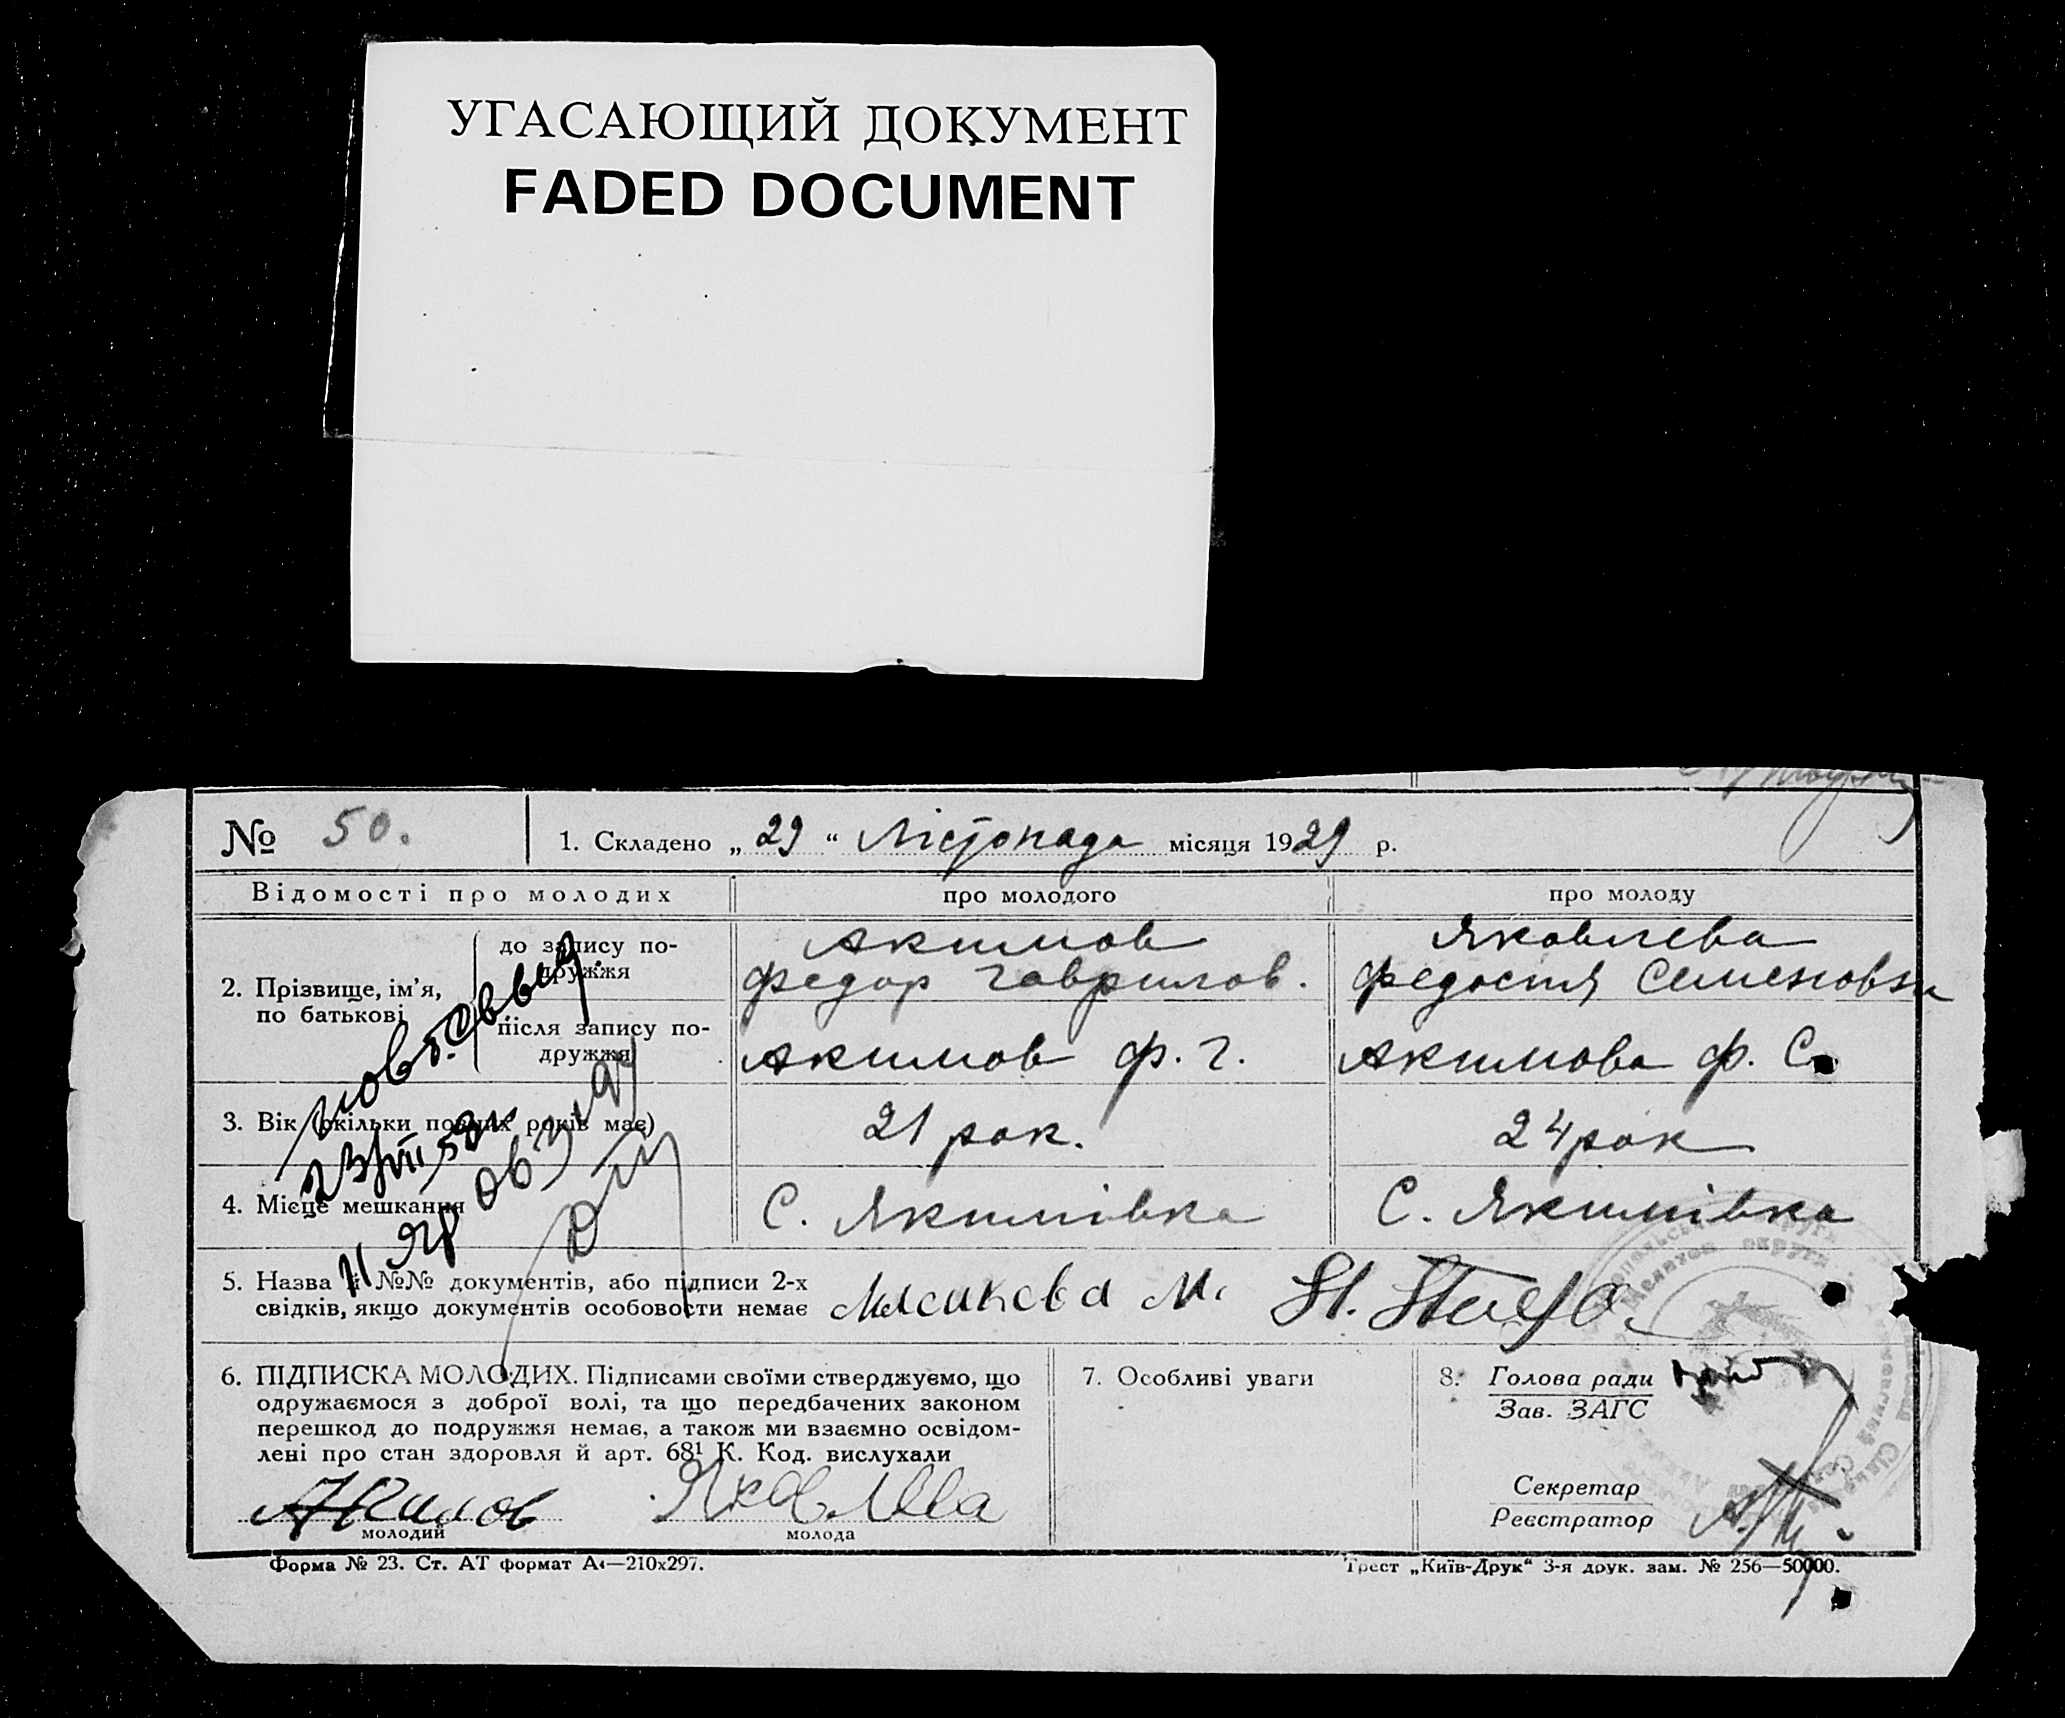 УГАСАЮЩИЙ ДОКУМЕНТ
FADED DOCUMENT
№ 50.
1. Складено „ 29 “ Лістопада місяця 1929 р.
Відомості про молодих
про молодого
про молоду
2. Прізвище, ім’я, по батькові
до запису по-
дружжя
Акимов
Федор Гаврилов.
Яковлева
Федостя Семеновна
після запису по-
дружжя
Акимов Ф. Г.
Акимова Ф. С.
3. Вік (скільки повних років має)
21 рок.
24 рок
4. Місце мешкання
С. Якимівка
С. Якимівка
5. Назва й №№ документів, або підписи 2-х
свідків, якщо документів особовости немає
М.
6. ПІДПИСКА МОЛОДИХ. Підписами своїми стверджуємо, що
одружаємося з доброї волі, та що передбачених законом
перешкод до подружжя немає, а також ми взаємно освідом-
лені про стан здоровля й арт. 68¹ К. Код. вислухали
Акимов
молодий
Яковлева
молода
7. Особливі уваги
8. Голова ради
Зав. ЗАГС
Секретар
Реєстратор
Форма № 23. Ст. АТ формат А4—210х297.
Трест „Київ-Друк“ 3-я друк. зам. № 256—50000.